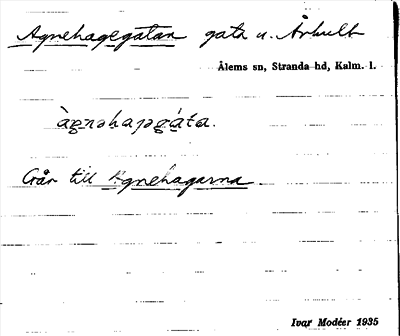 Agnehagegatan gata u. Århult
Ålems sn, Stranda hd, Kalm. l.
àgnəhaɡəgáta.
Går till Agnehagarna
Ivar Modéer 1935